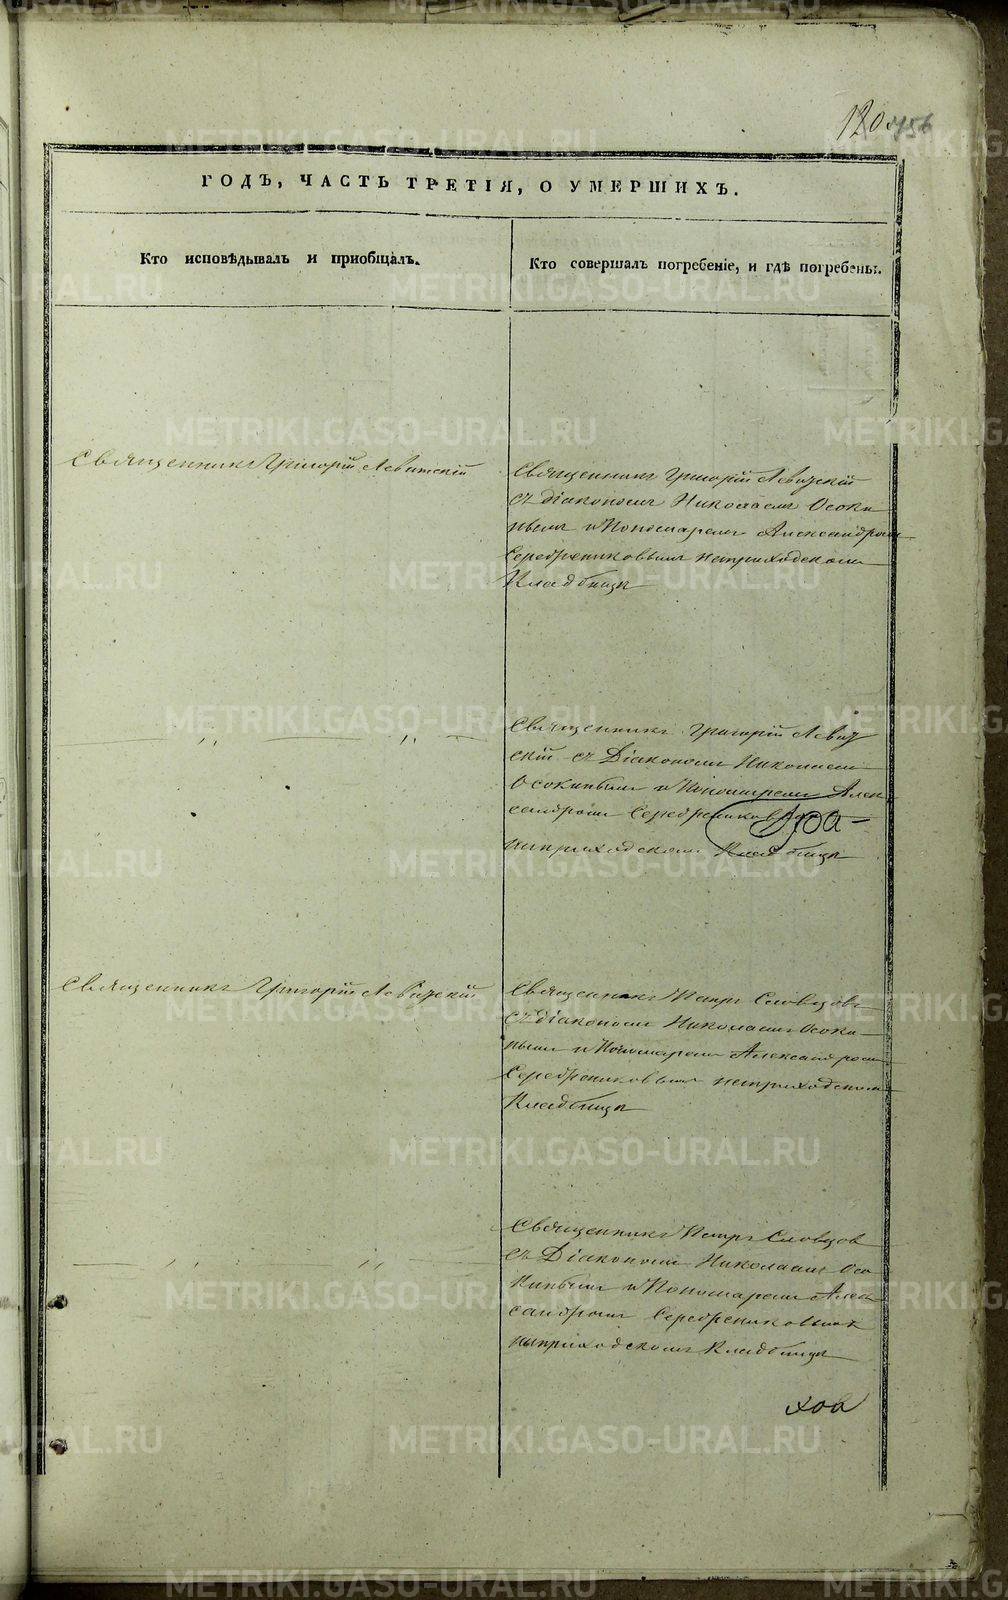 120 456
ГОДЪ, ЧАСТЬ ТРЕТІЯ, О УМЕРШИХЪ.
Кто исповѣдывалъ и пріобщалъ.
Кто совершалъ погребеніе, и гдѣ погребены.
Священникъ Григорій Левитскій
Священникъ Григорій Левицкій
съ діакономъ Николаемъ Осоки
нымъ и Пономаремъ Александромъ
Серебрениковымъ на приходскомъ
Кладбищѣ
„ „
Священникъ Григорій Левиц
скій съ Діакономъ Николаемъ
Осокинымъ и Пономаремъ Алек
сандромъ Серебрениковымъ
на приходскомъ Кладбищѣ
Священникъ Григорій Левицскій
Священникъ Петръ Словцовъ
съ діакономъ Николаемъ Осоки
нымъ и Пономаремъ Александромъ
Серебрениковымъ на приходскомъ
Кладбищѣ
„ „
Священникъ Петръ Словцов
съ Діакономъ Николаемъ Осо
кинымъ и Пономаремъ Алек
сандромъ Серебрениковымъ
на приходскомъ Кладбищѣ
METRIKI.GASO-URAL.RU